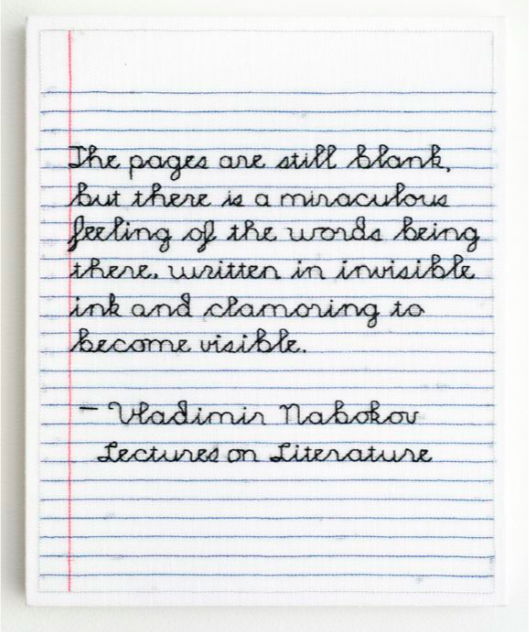 The pages are still blank,
but there is a miraculous
feeling of the words being
there, written in invisible
ink and clamoring to
become visible.
- Vladimir Nabokov
Lectures on Literature